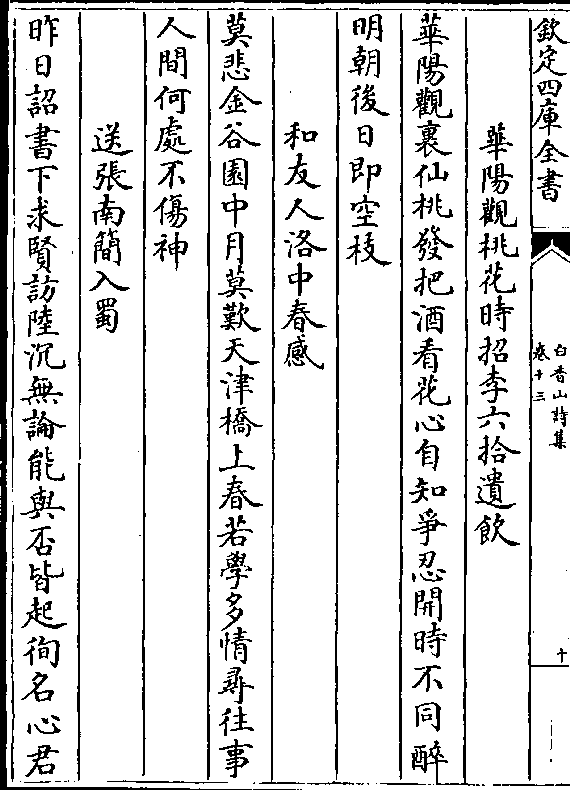 欽定四庫全書
白香山詩集
卷十三
十
華陽觀桃花時招李六拾遺飲
華陽觀裏仙桃發把酒看花心自知爭忍開時不同醉
明朝後日即空枝
和友人洛中春感
莫悲金谷園中月莫歎天津橋上春若學多情尋往事
人間何處不傷神
送張南簡入蜀
昨日詔書下求賢訪陸沉無論能與否皆起徇名心君